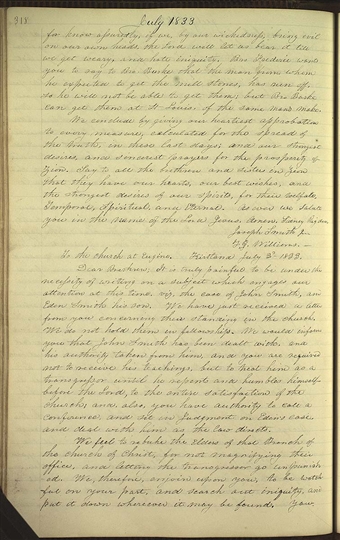 318 July 1833
for know assuredly, if we, by our wickedness, bring evil
on our own heads, the Lord will let us bear it till
we get weary and hate iniquity. Bro. Frederic wants
you to say to Bro. Burke that the man from whom
he expected to get the Mill Stones, has run off.
So he will not be able to get them; but Bro. Burke
can get them at St. Louis, of the same make.
We conclude by giving our heartiest approbation
to every measure calculated for the spread of
the truth, in these last days; and our strongest
desires, and sincerest prayers for the prosperity of
Zion. Say to all the brethren and sisters in Zion
that they have our hearts, our best wishes, and
the strongest desires of our spirits, for their welfare,
temporal, spiritual, and eternal. As ever, we salute
you in the name of the Lord Jesus. Amen. Sidney Rigdon,
Joseph Smith Jr.
F.G. Williams. —
To the church at Eugene. Kirtland July 2d 1833.
Dear Brethren; It is truly painful to be under the
necessity of writing on a subject which engages our
attention at this time, viz, the case of John Smith, and
Eden Smith his son. We have just received a letter
from you concerning their standing in the church.
We do not hold them in fellowship. We would inform
you that John Smith has been dealt with, and
his authority taken from him; and you are required
not to receive his teachings, but to treat him as a
transgressor until he repent and humbles himself
before the Lord, to the entire satisfaction of the
church; and also, you have authority to call a
conference, and sit in judgment on Eden's case
and deal with him as the law directs.
We feel to rebuke the Elders of that Branch of
the church of Christ, for not magnifying their
office, and letting the transgressor go unpunish-
ed. We, therefore, enjoin upon you, to be watch
ful on your part, and search out iniquity, and
put it down wherever it may be found. You